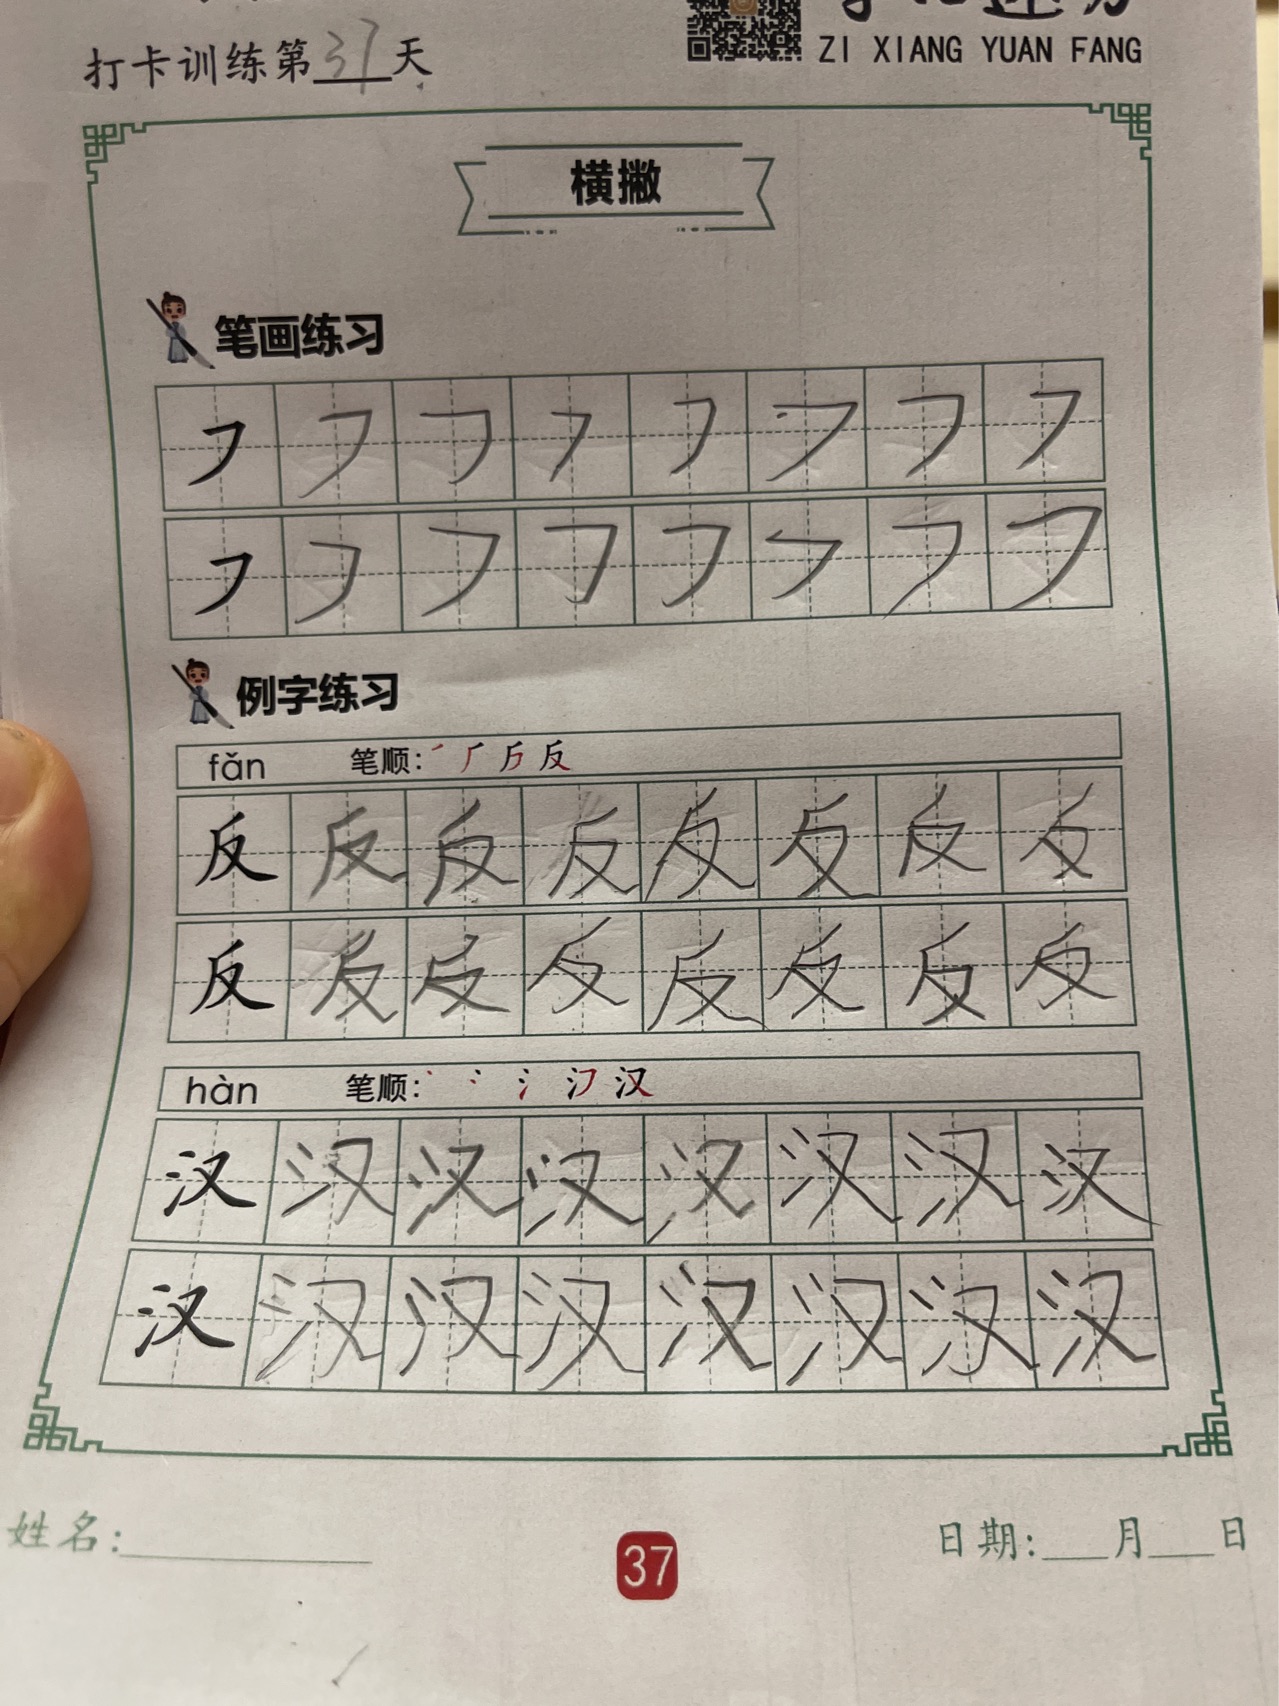 打卡训练第37天
ZI XIANG YUAN FANG
横撇
笔画练习
㇇ ㇇ ㇇ ㇇ ㇇ ㇇ ㇇ ㇇
㇇ ㇇ ㇇ ㇇ ㇇ ㇇ ㇇ ㇇
例字练习
fǎn 笔顺: 反
反 反 反 反 反 反 反 反
反 反 反 反 反 反 反 反
hàn 笔顺: 汉
汉 汉 汉 汉 汉 汉 汉 汉
汉 汉 汉 汉 汉 汉 汉 汉
姓名:
37
日期:___月___日